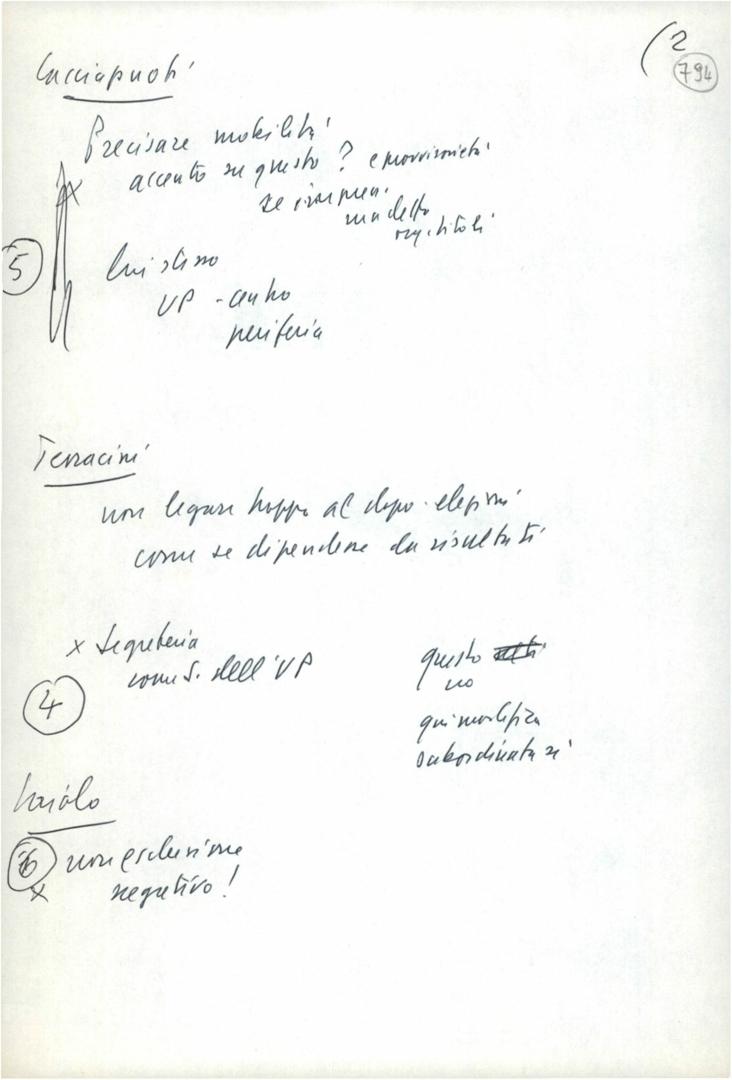 (2
794
Cacciapuoti
Precisare mobilità
accento su questo? e provvisorietà
se
ma detto
5
lui stesso
UP - centro
periferia
Terracini
non legare troppo al dopo-elezioni
come se dipendesse da risultati
x Segreteria
come S. dell'UP
4
questo
no
qui modifica
subordinata sì
Lajolo
6 non esclusione
x negativo!